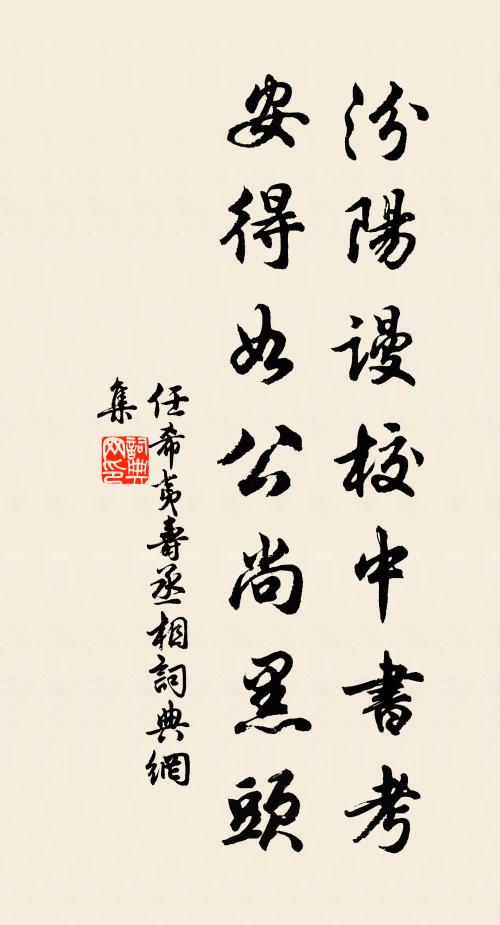 汾陽謾校中書考
安得如公尚黑頭
任希夷壽丞相詞典網
集
詞典
网印